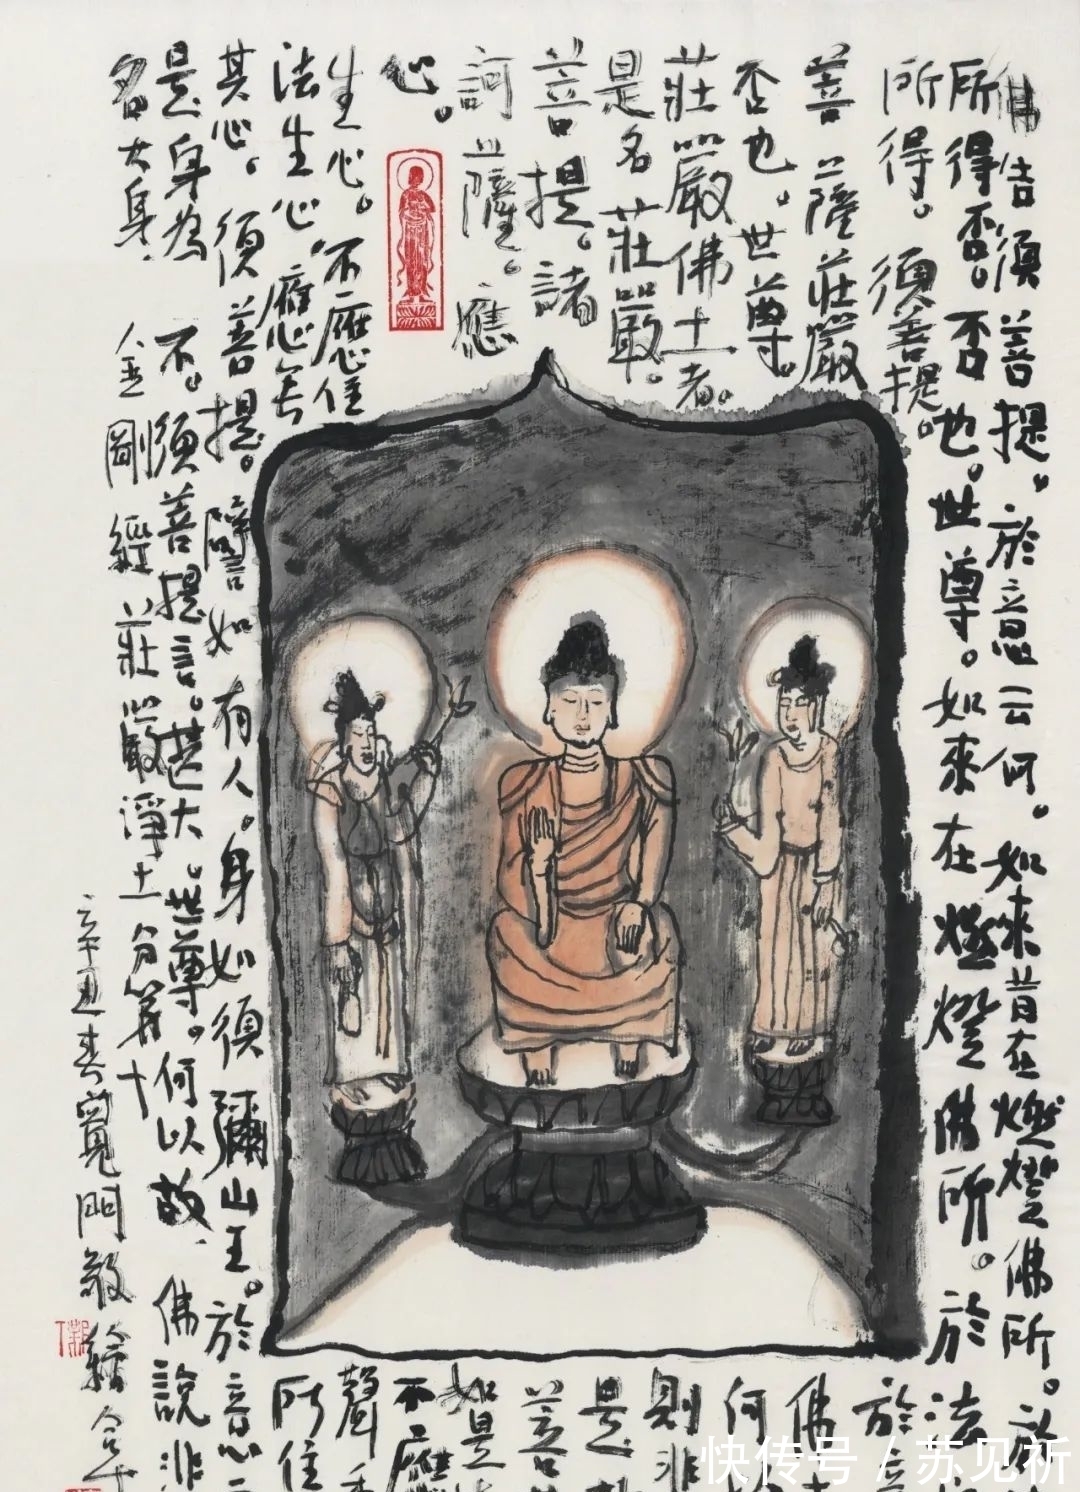 佛告須菩提。於意云何。如來昔在燃燈佛所。於
所得否。否也。世尊。如來在燃燈佛所。於法
所得。須菩提。
於意
菩薩莊嚴
佛
否也。世尊。
何
莊嚴佛土者。
則非
是名莊嚴。
是
菩提。諸
菩
訶薩。應
如是
心。
不應
生心。不應住
聲
法生心。應無
所住
其心。須菩提。譬如有人。身如須彌山王。於意云
是身為不。須菩提言。甚大。世尊。何以故。佛說非
名大身。
金剛經莊嚴淨土分第十
辛丑春寬門敬繪合十
快传号 / 苏见祈